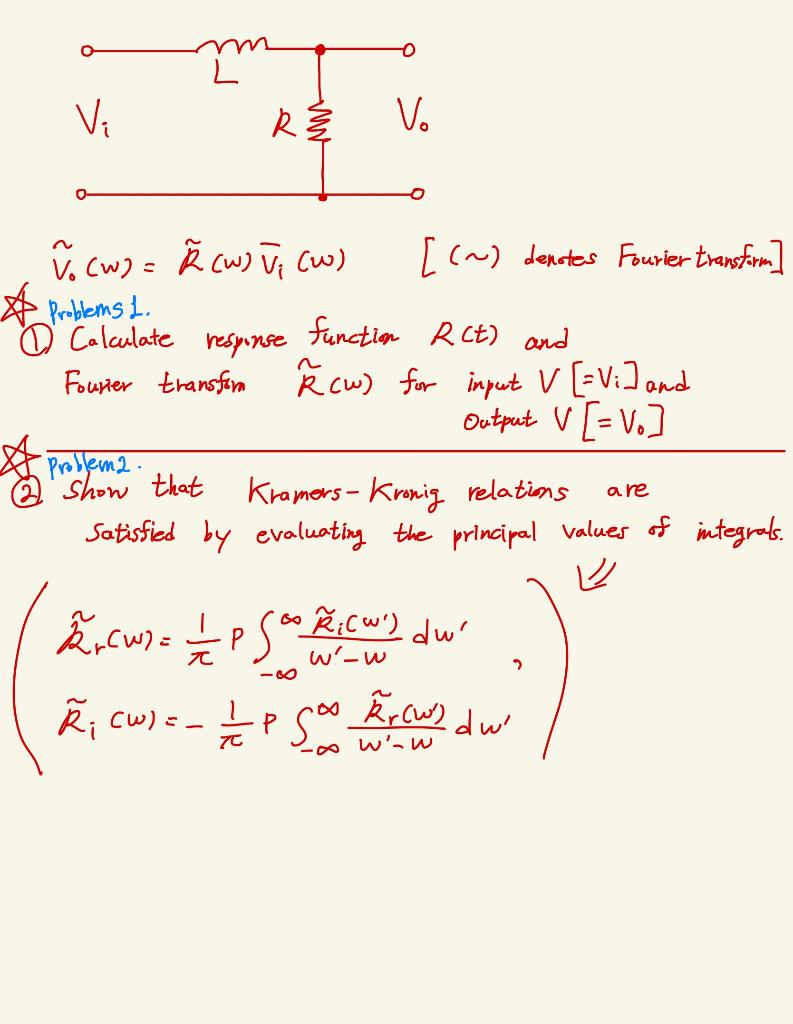 L
Vᵢ R V₀
Ṽ₀(w) = R̃(w) V̄ᵢ(w) [(~) denotes Fourier transform]
Problems 1.
① Calculate response function R(t) and
Fourier transfom R̃(w) for input V [=Vᵢ] and
Output V [=V₀]
Problem 2.
② Show that Kramers-Kronig relations are
Satisfied by evaluating the principal values of integrals.
( R̃ᵣ(w) = 1/π P ∫_{-∞}^{∞} R̃ᵢ(w')/(w'-w) dw' ,
R̃ᵢ(w) = - 1/π P ∫_{-∞}^{∞} R̃ᵣ(w')/(w'-w) dw' )